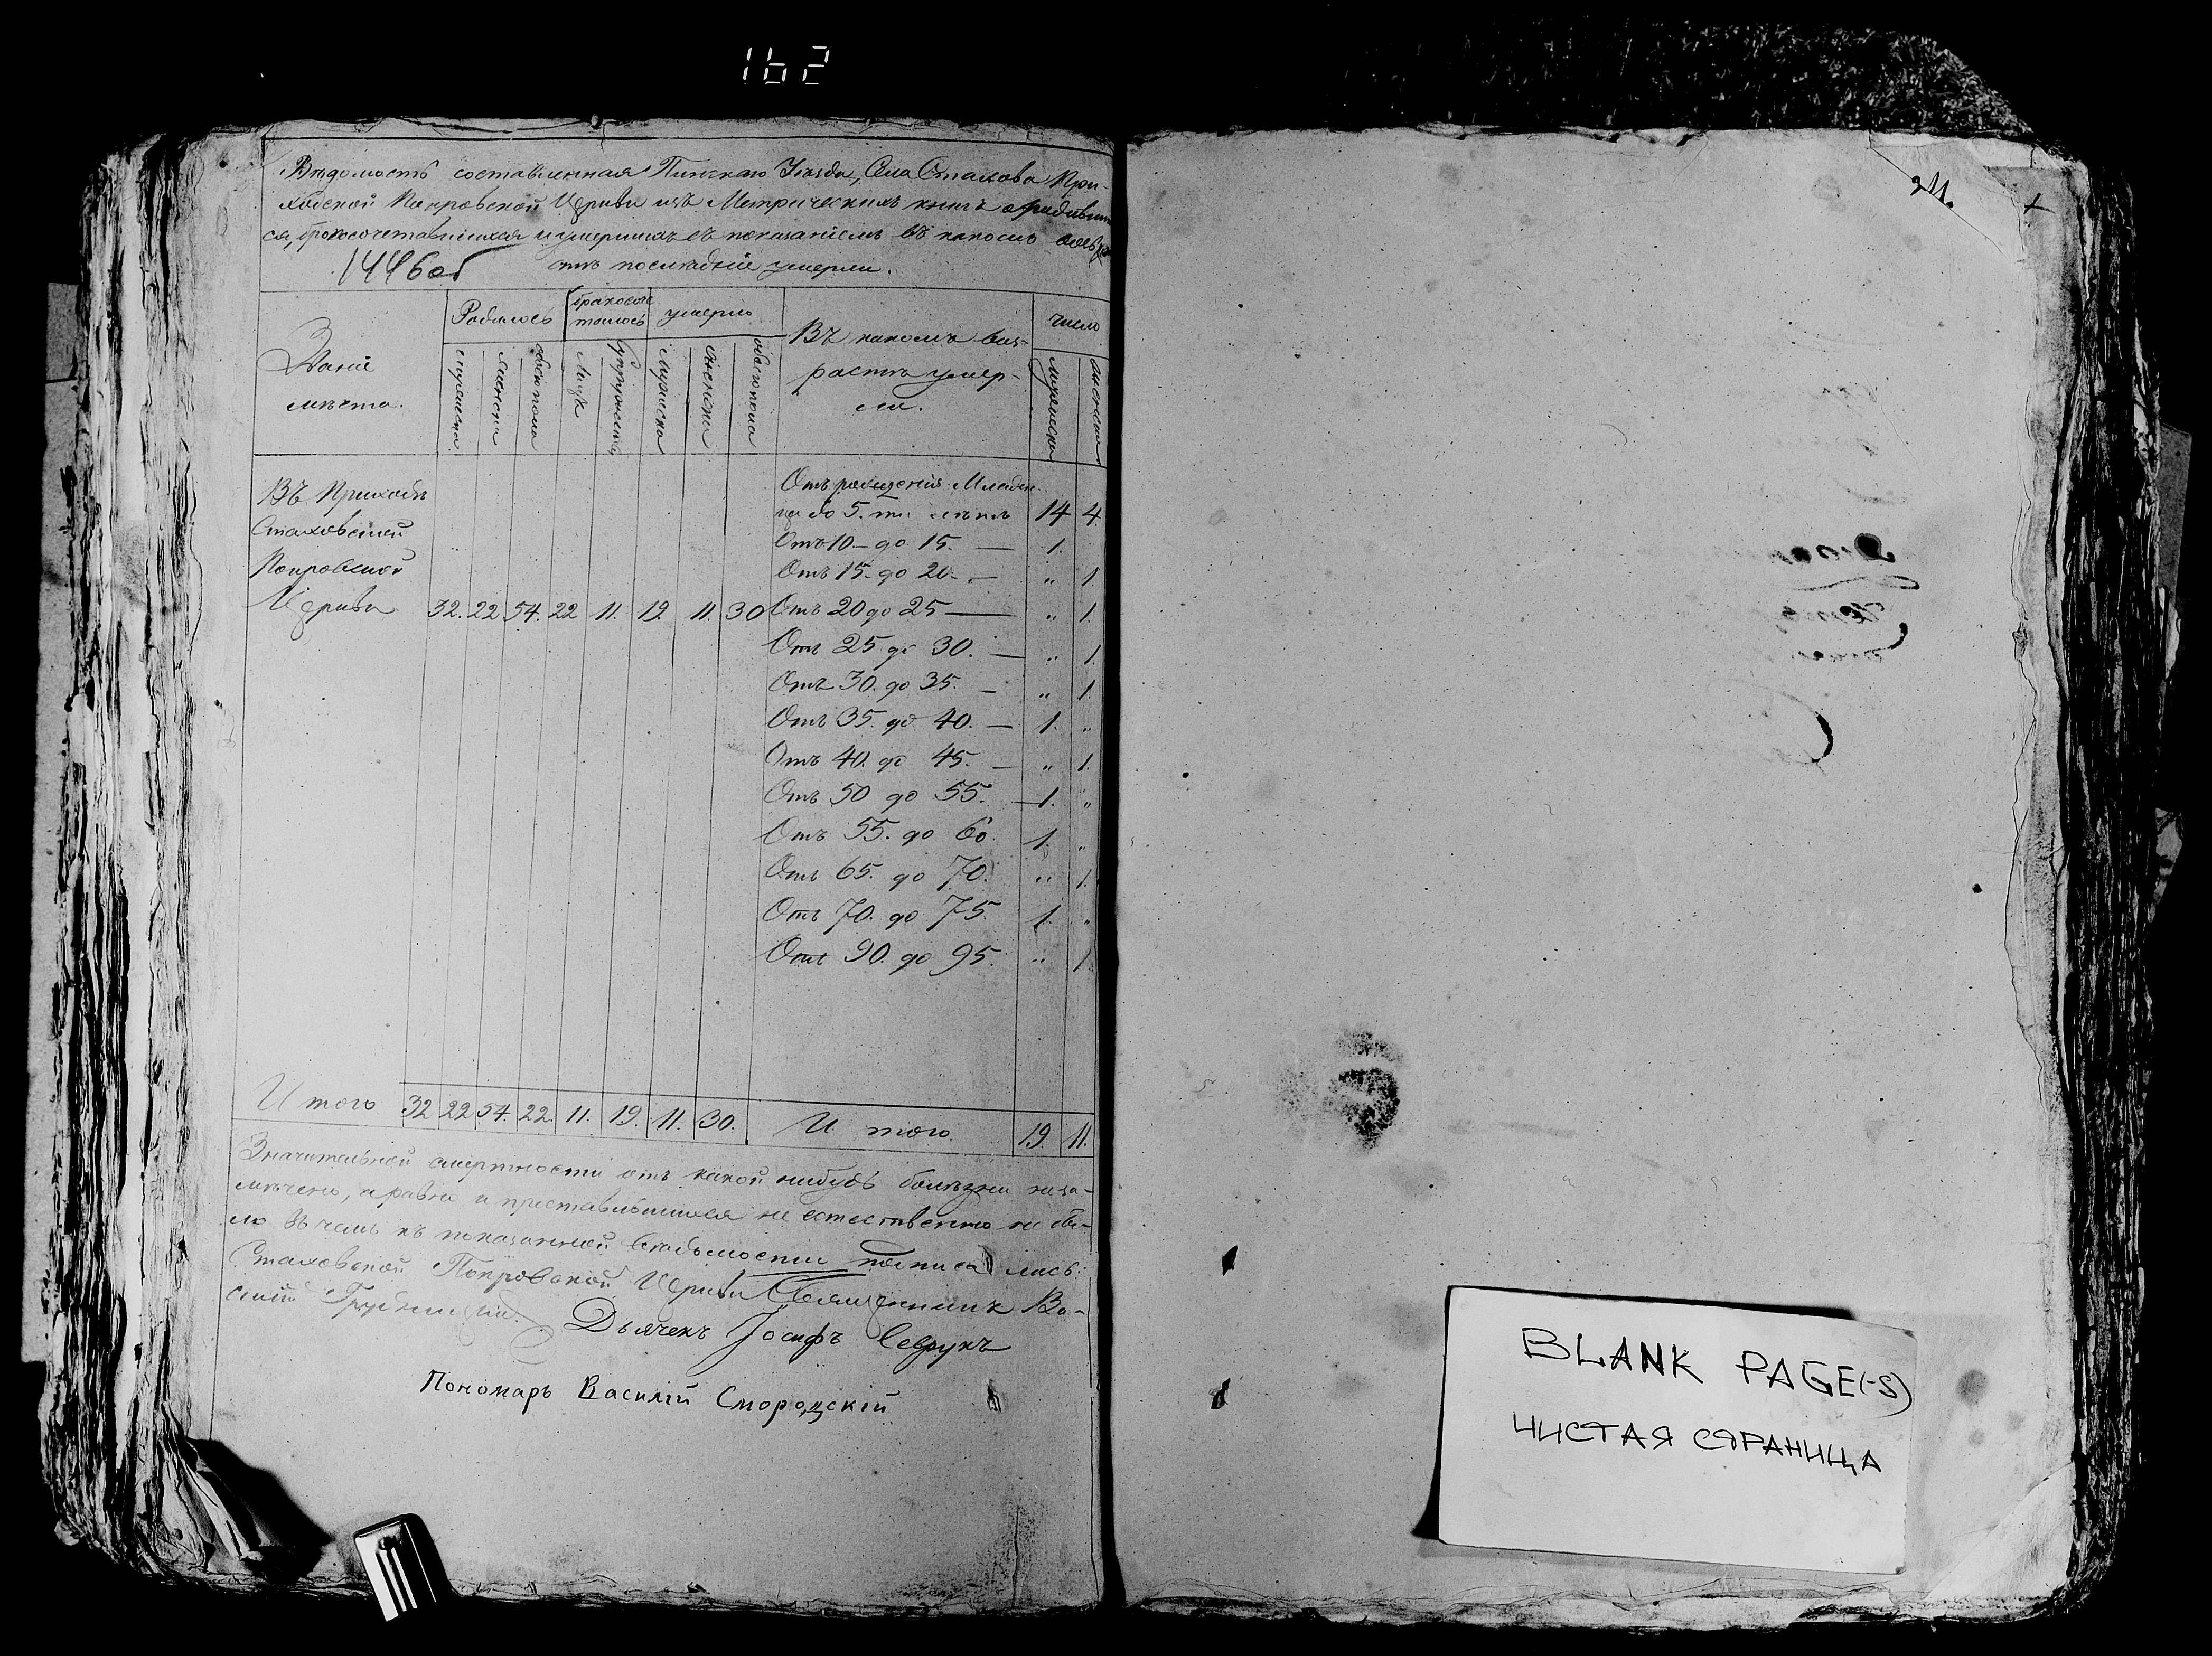 162
Вѣдомость составленная Пинскаго Уѣзда, Села Стахова При-
ходской Покровской Церкви изъ Метрическихъ книгъ о родивши
ся, бракосочетавшихся и умершихъ съ показаніемъ въ какомъ воз
1446об
послѣдніе умерли.
Званіе
мѣста.
Родилось
умерло
Въ какомъ воз-
растѣ умер-
ли.
число
мужеска
женска
обоего пола
Мужеска
женска
обоего пола
мужеска
женска
Въ Приходѣ
Стаховской
Покровской
Церкви
32. 22 54. 22 11. 19 11. 30
Отъ рожденія Младен
ца до 5. ти лѣтъ 14 4.
Отъ 10 – до 15. — 1.
Отъ 15. до 20. — „ 1.
Отъ 20 до 25 — „ 1.
Отъ 25 до 30. — „ 1.
Отъ 30. до 35. — „ 1.
Отъ 35. до 40. — 1. „
Отъ 40 до 45. — „ 1.
Отъ 50 до 55. — 1. „
Отъ 55. до 60. 1. „
Отъ 65. до 70. „ 1.
Отъ 70. до 75. 1. „
Отъ 90. до 95. „ 1.
Итого 32 22 54. 22. 11. 19. 11. 30. Итого 19. 11.
Значительной смертности отъ какой нибудь болѣзни неза-
мѣчено, а равно и преставившихся не естественно не бы-
ло въ чемъ къ показанной вѣдомости подписались:
Стаховской Покровской Церкви Священникъ Ва-
силій
Дьячекъ Іосифъ Севрукъ
Пономарь Василій Смородскій
211.
BLANK PAGE(-S)
ЧИСТАЯ СТРАНИЦА